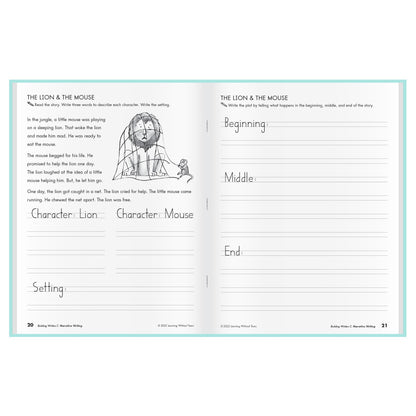 THE LION & THE MOUSE
Read the story. Write three words to describe each character. Write the setting.
In the jungle, a little mouse was playing
on a sleeping lion. That woke the lion
and made him mad. He was ready to
eat the mouse.
The mouse begged for his life. He
promised to help the lion one day.
The lion laughed at the idea of a little
mouse helping him. But, he let him go.
One day, the lion got caught in a net. The lion cried for help. The little mouse came
running. He chewed the net apart. The lion was free.
Character: Lion
Character: Mouse
Setting:
20
Building Writers C: Narrative Writing
© 2022 Learning Without Tears
THE LION & THE MOUSE
Write the plot by telling what happens in the beginning, middle, and end of the story.
Beginning:
Middle:
End:
© 2022 Learning Without Tears
Building Writers C: Narrative Writing
21